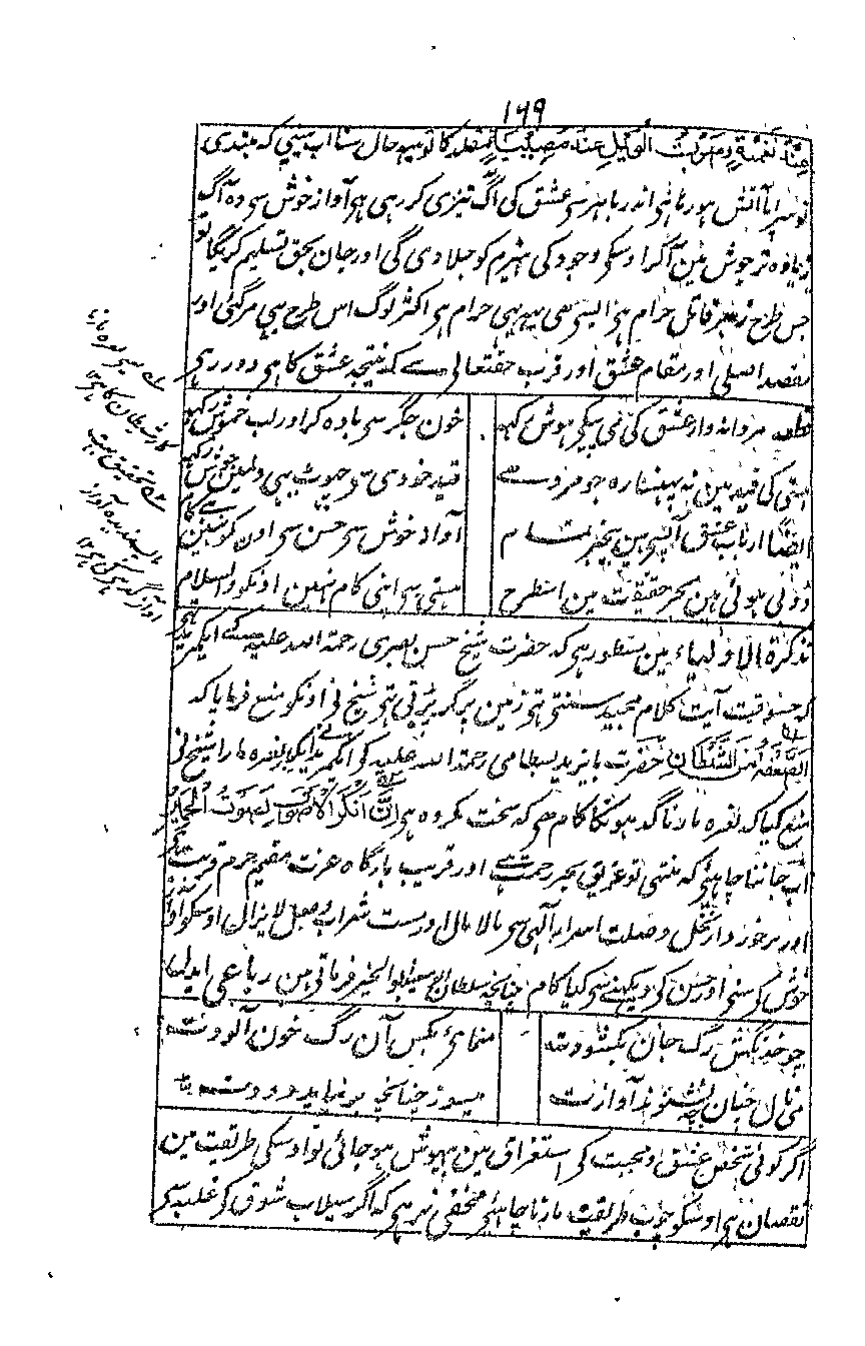 ۱۶۹
عِنْدَ نَغْمَةٍ وَصَوْتُ الْوَيْلِ عِنْدَ مُصِيْبَةٍ مقلد کا تو یہہ حال سنا اب سنیے کہ مبتدی
تو سراپا آتش ہو رہا ہی اندر باہر سی عشق کی آگ تیزی کر رہی ہی آواز خوش سی وہ آگ
زیادہ تر جوش مین آ کر اوسکی وجود کی ہیزم کو جلا دی گی اور جان بحق تسلیم کریگا تو
جس طرح زہر قاتل حرام ہی ایسی ہی یہہ بہی حرام ہی اکثر لوگ اس طرح ہی مر گئی اور
مقصد اصلی اور مقام عشق اور قرب حقتعالی سے کہ نتیجہ عشق کا ہی دور رہی
قطعہ مردانہ وار عشق کی می پیکی ہوش رکہہ
خون جگر سی بادہ کر اور لب خموش رکہہ
ہستی کی قید مین نہ پہنسا رہ جو مرد ہے
قید خودی سی چہوٹ یہی دلمین جوش رکہہ
ایضا ارباب عشق آپسی ہین بیخبر تمام
آواز خوش سی حسن سی اون کو نہین ہے کام
ڈوبی ہوئی ہین بحر حقیقت مین اسطرح
ہستی سی اپنی کام نہین اونکو والسلام
تذکرۃ الاولیاء مین مسطور ہی کہ حضرت شیخ حسن بصری رحمۃ اللہ علیہ کے ایکمرید تہی
کہ جسوقت آیت کلام مجید سنتی تہی زمین پر گر پڑتی تہی شیخ نی اونکو منع فرمایا کہ
اَلصَّعْقَۃُ مِنَ الشَّيْطَانِ حضرت بایزید بسطامی رحمۃ اللہ علیہ کی ایکمرید نے ایکبار نعرہ مارا شیخ نی
منع کیا کہ نعرہ مارنا گدہونکا کام ہی کہ سخت مکروہ ہی اِنَّ اَنْكَرَ الْاَصْوَاتِ لَصَوْتُ الْحَمِيْرِ
اب جاننا چاہئی کہ منتہی تو غریق بحر رحمت ہے اور قریب بارگاہ عزت مقیم حرم قربت
اور برخوردار نخل وصلت اسرار الٓہی سی مالا مال اور مست شراب وصل لایزال اوسکو آواز
خوش کی سننی اور حسن کی دیکہنے سی کیا کام چنانچہ سلطان ابو سعید ابو الخیر فرماتی ہین رباعی ایدل
چو خدنگش رگ جان بکشودت
منمای بکس آن رگ خون آلودت
می نال چنان کہ نشنوند آوازت
میسوز چنانچہ برنیاید دودت
اگر کوئی شخص عشق و محبت کی استغراق مین بیہوش ہو جائی تو اوسکی طریقت مین
نقصان ہی اوسکو چوب طریقت مارنا چاہئی مخفی نرہی کہ اگر سیلاب شوق کی غلبہ سی
کار شیطان کا ہی ۱۲
تحقیق بہت
ناپسندیدہ آواز
آواز گدہی کی ہی ۱۲